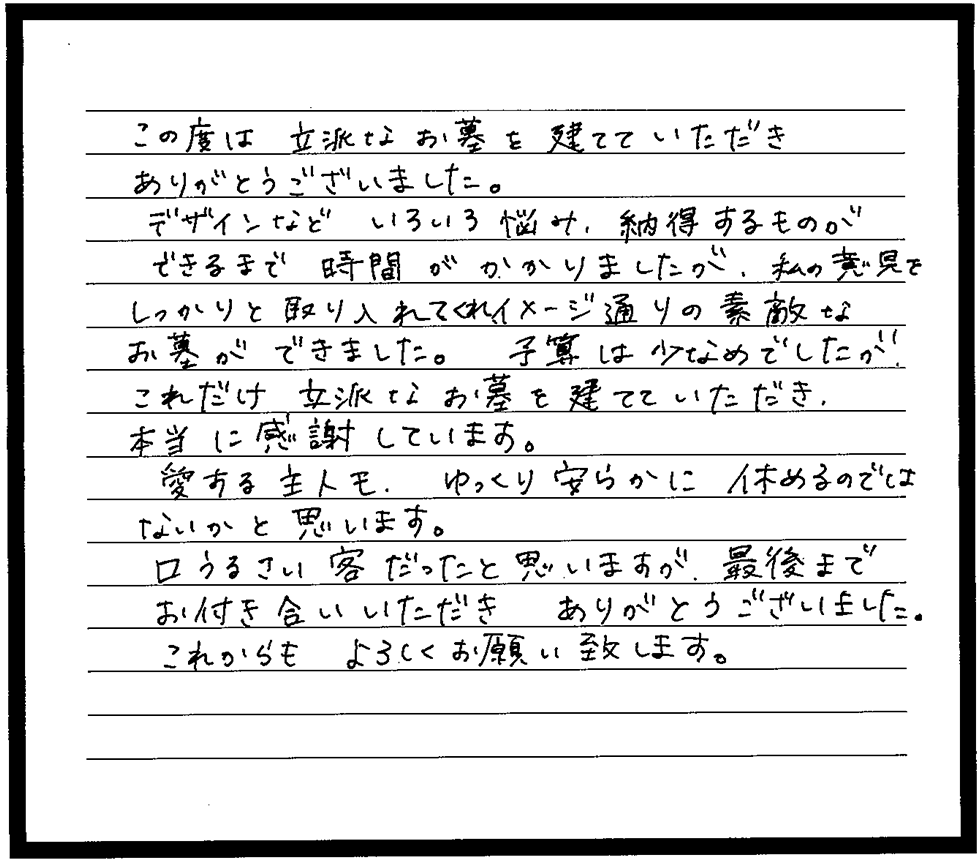 この度は 立派なお墓を 建てて いただき
ありがとうございました。
デザインなど いろいろ悩み、納得するものが
できるまで 時間 が かかりましたが、私の意見を
しっかりと 取り入れてくれ、イメージ通りの 素敵な
お墓が できました。 予算は 少なめでしたが、
これだけ 立派な お墓を 建てて いただき、
本当に 感謝しています。
愛する 主人も、 ゆっくり 安らかに 休めるのでは
ないかと 思います。
口うるさい 客だったと 思いますが、最後まで
お付き合いいただき ありがとうございました。
これからも よろしくお願い致します。